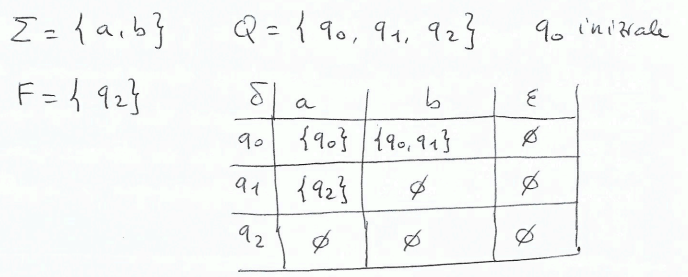 Σ = { a, b } Q = { q0, q1, q2 } q0 iniziale
F = { q2 }
δ a b ε
q0 {q0} {q0, q1} ∅
q1 {q2} ∅ ∅
q2 ∅ ∅ ∅